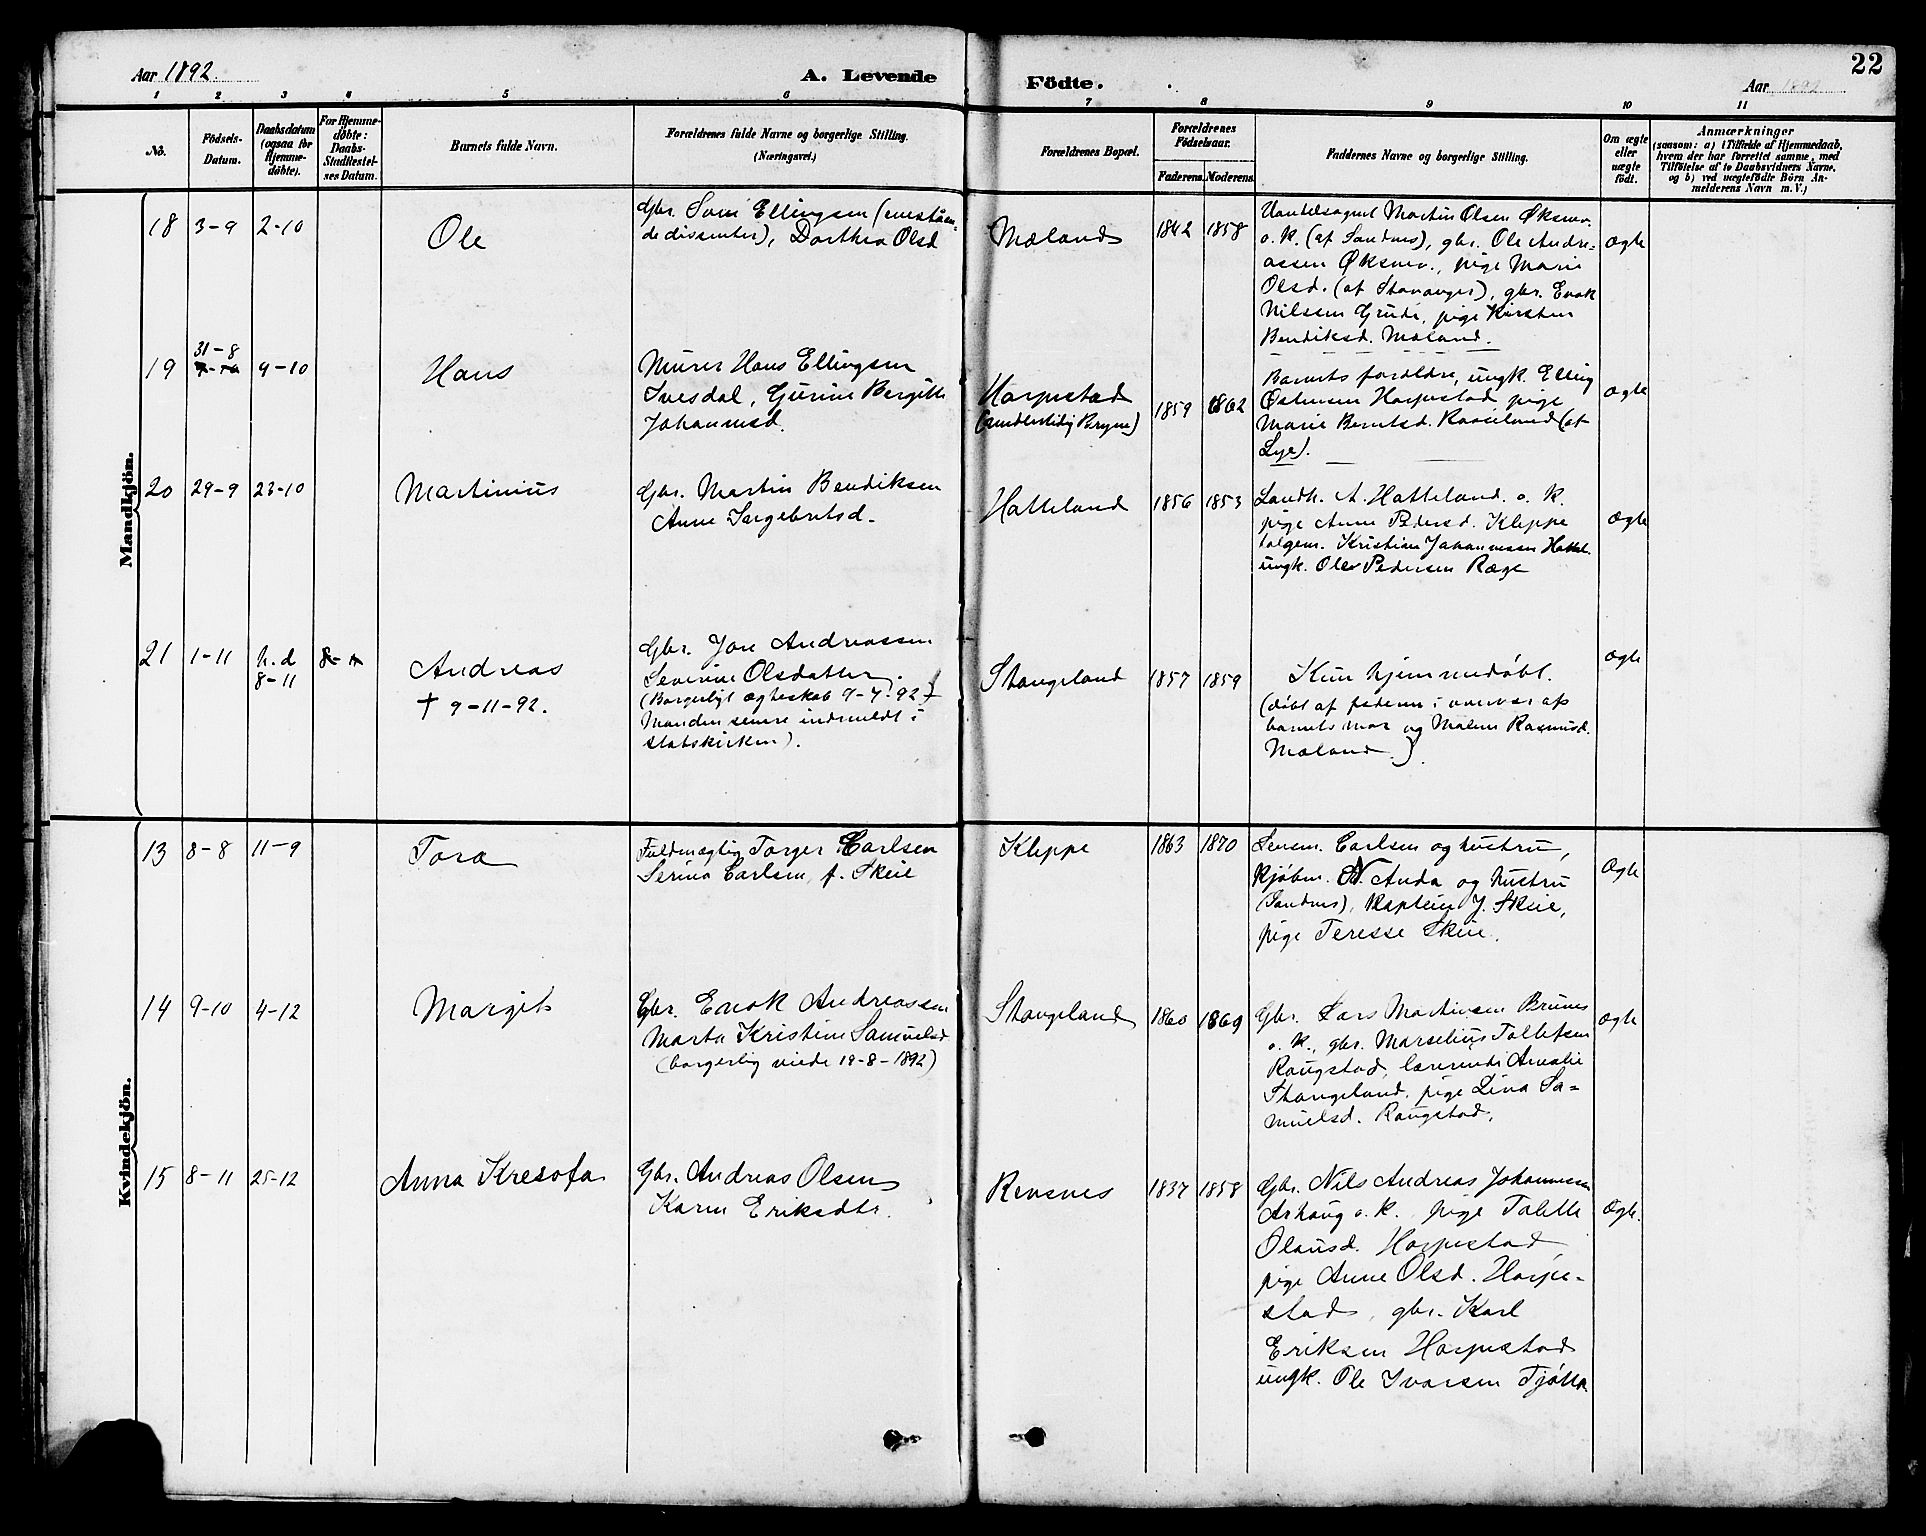 Aar 1892.
A. Levende
Födte.
Aar 1892
22
1 2 3 4 5 6 7 8 9 10 11
No.
Födsels-
Datum.
Daabsdatum
(ogsaa for
Hjemme-
döbte).
For Hjemme-
döbte:
Daabs-
Stadfæstel-
ses Datum.
Barnets fulde Navn.
Forældrenes fulde Navne og borgerlige Stilling.
(Næringsvei.)
Forældrenes Bopæl.
Forældrenes
Födselsaar.
Faderens. Moderens.
Faddernes Navne og borgerlige Stilling.
Om ægte
eller
uægte
födt.
Anmærkninger
(saasom: a) i Tilfælde af Hjemmedaab,
hvem der har forrettet samme, med
Tilföielse af to Daabsvidners Navne,
og b) ved uægtefödte Börn An-
melderens Navn m. V.)
Mandkjön.
18 3-9 2-10
Ole
Gbr. Ellingsen (enestå
de dissenter), Dorthea Olsd
Mæland
1842 1858
Martin Olsen Øksnev.
o. k. (af Sandnes), gbr. Ole Andre-
assen Øksnev., pige Marie
Olsd. (af Stavanger), gbr. Enok
Nilssen Grude, pige Kirsten
Bendiksd. Mæland.
ægte
19 31-8 9-10
Hans
Murer Hans Ellingsen
Ivesdal, Gurine Bergitte
Johannesd.
Horpestad
(midlertidig Bryne)
1859 1862
Barnets forældre, ungk. Elling
Østensen Horpestad pige
Marie Berntsd. (af
Lye).
ægte
20 29-9 23-10
Martinius
Gbr. Martin Bendiksen
Anne Ingebretsd.
Hatteland
1856 1853
Landh. A. Hatteland o. k.
pige Anne Pedersd. Kleppe
Kristian Johannessen Hattel.
ungk. Olev Pedersen Ræge
ægte
21 1-11 h.d 8-11
8-11
Andreas
† 9-11-92.
Gbr. Jon Andreassen
Severine Olsdatter.
(Borgerligt ægteskab 9-7-92
Manden senere indmeldt i
statskirken).
Stangeland
1857 1859
Kun hjemmedøbt.
(døbt af faderen i overvær af
barnets mor og Malene Rasmusd.
Mæland.)
ægte
Kvindekjön.
13 8-8 11-9
Tora
Fuldmægtig Torger Carlsen
Serina Carlsen, f. Skeie
Kleppe
1863 1870
Lensm. Carlsen og hustru,
kjøbm. N. Anda og hustru
(Sandnes), Kaptein J. Skeie,
pige Teresse Skeie.
Ægte
14 9-10 4-12
Margit
Gbr. Enok Andreassen
Marta Kristine Samuelsd
(borgerlig viede 19-8-1892)
Stangeland
1860 1869
Gbr. Lars Martinsen Brunes
o. k., gbr. Marselius Tollefsen
Raugstad, lærerinde Amalie
Stangeland, pige Lina Sa-
muelsd. Raugstad.
ægte
15 8-11 25-12
Anna Kresofa
Gbr. Andreas Olsen
Karen Eriksdtr.
Revsnes
1837 1858
Gbr. Nils Andreas Johannessen
Orhaug o. k. pige Tolette
Olausd. Horpestad,
pige Anne Olsd. Horpe-
stad, gbr. Karl
Eriksen Horpestad
ungk. Ole Ivarsen Tjøtta.
Ægte.